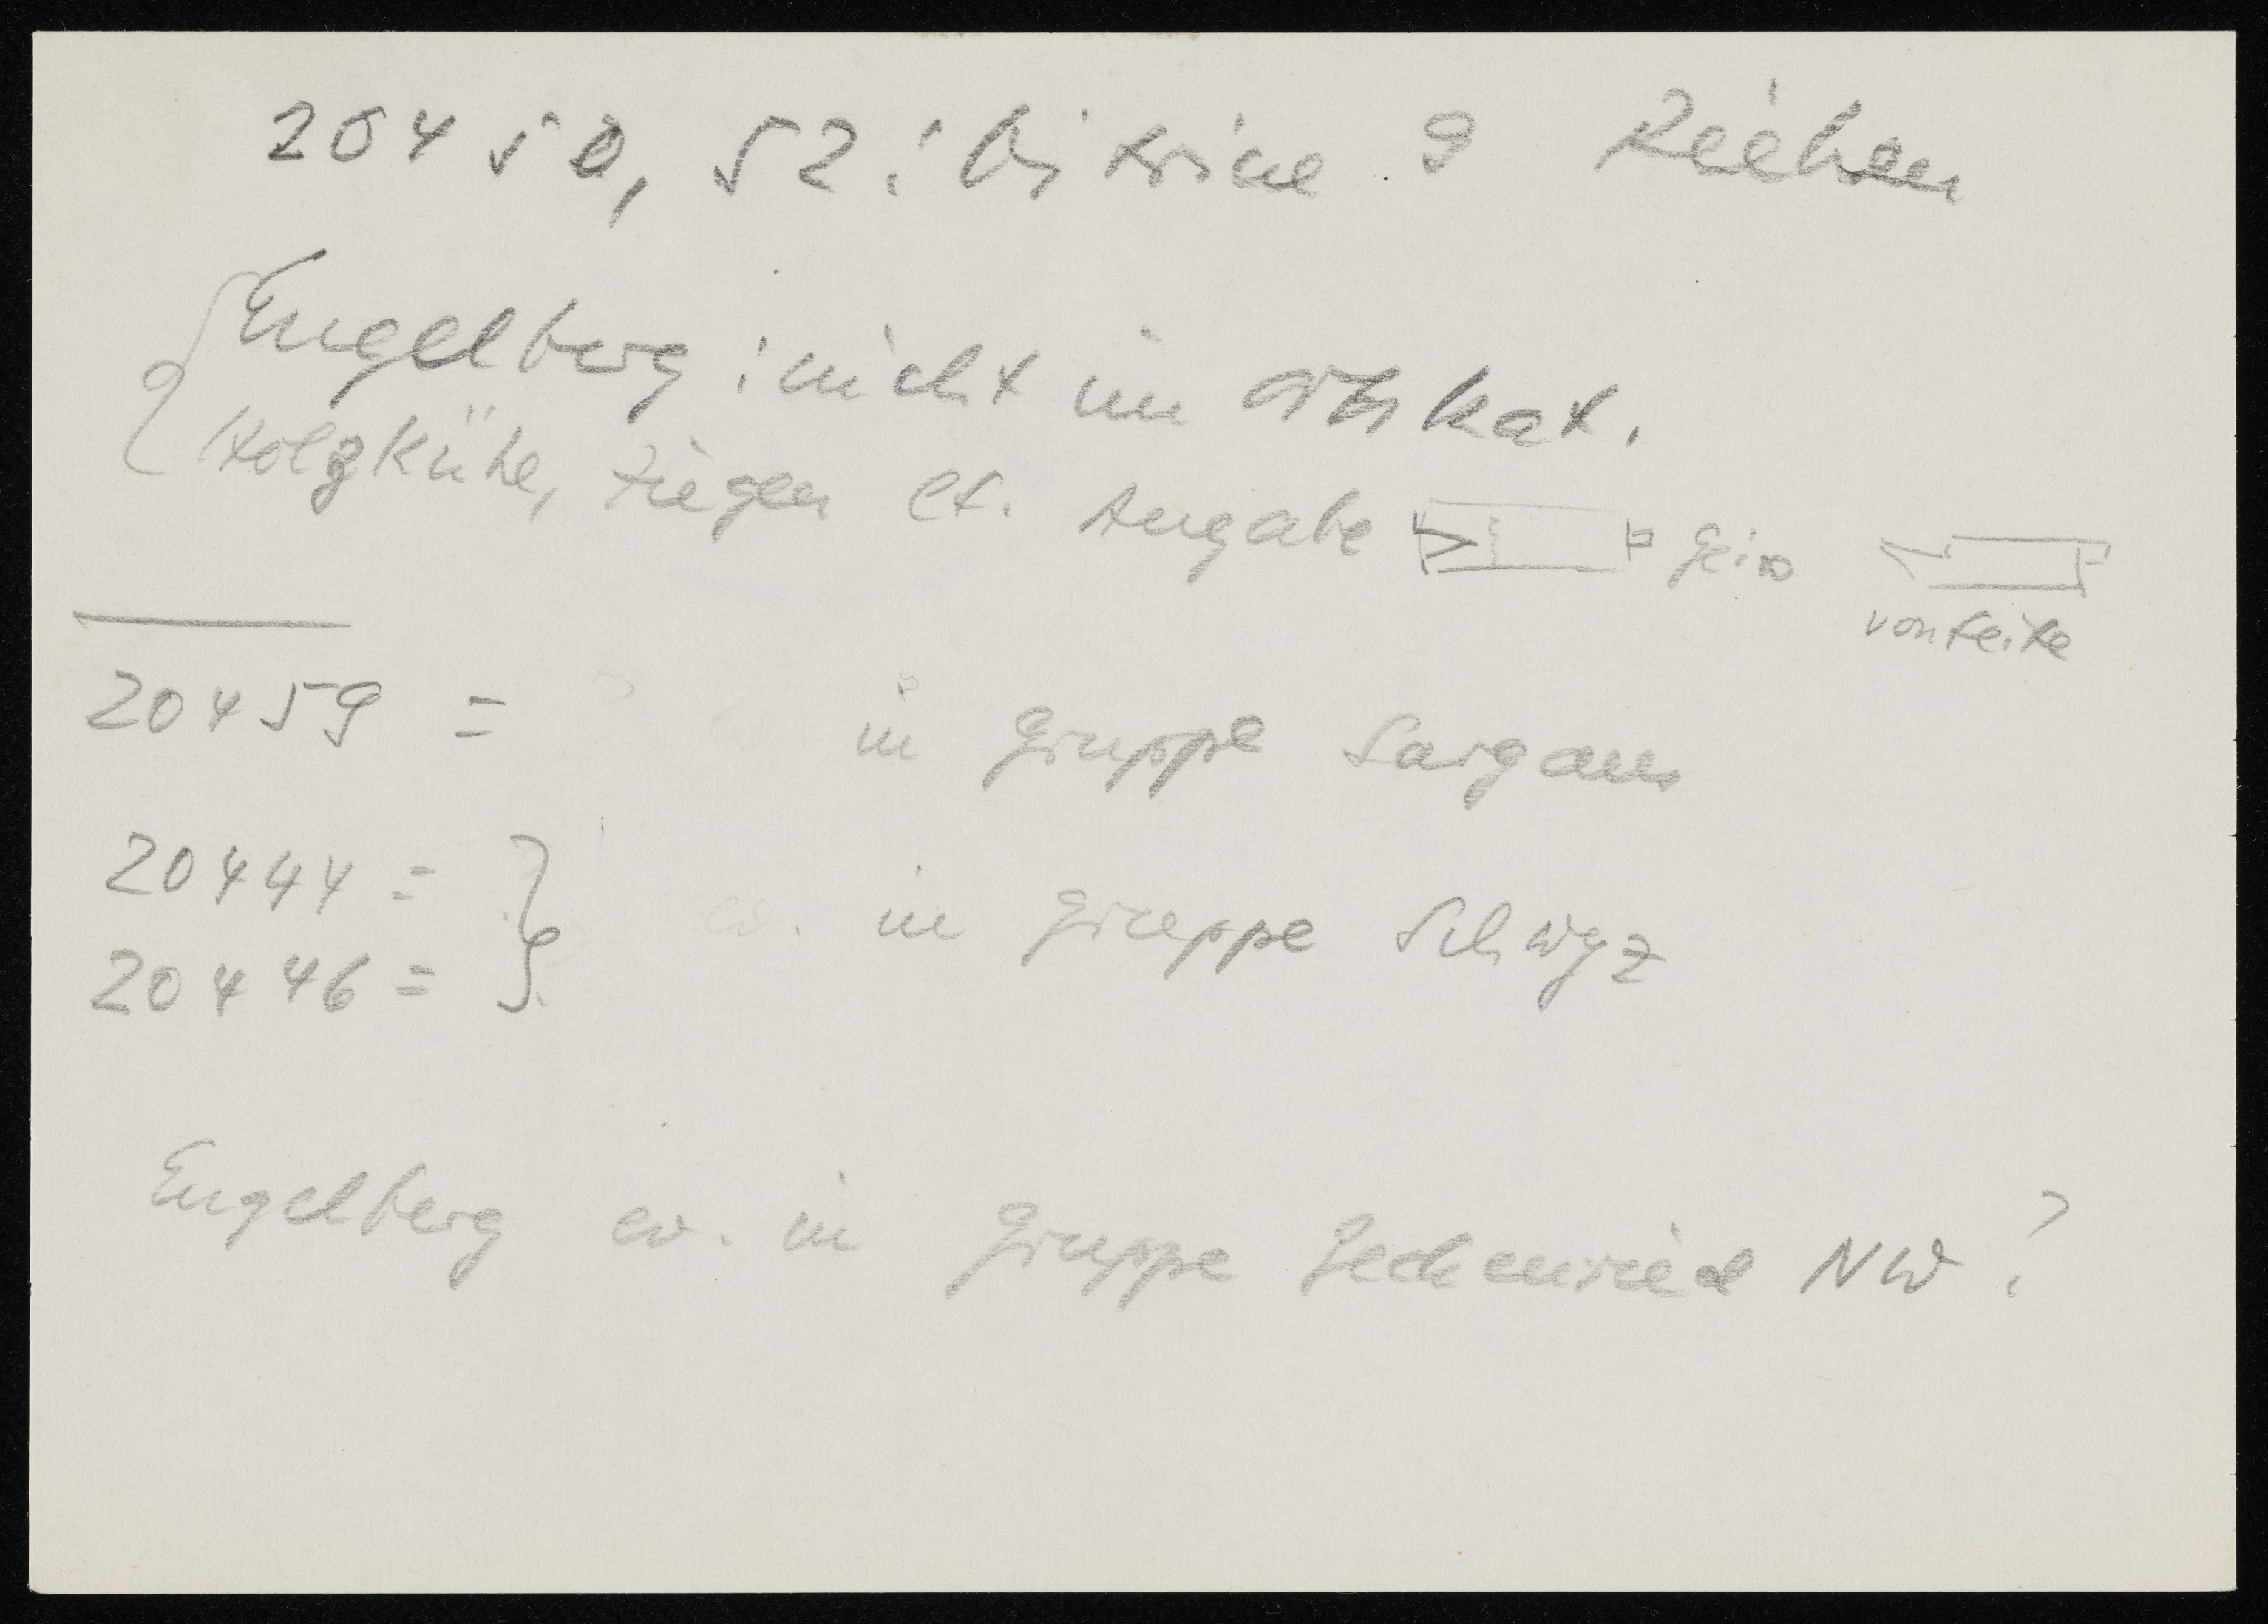 20450, 52: Vitrine 9 Riehen
Engelberg: nicht im Ortskat.
Holzkühe, Ziegen lt. Angabe Geiss
von Seite
20459 = in Gruppe Sargans
20444 =
20446 = ev. in Gruppe Schwyz
Engelberg ev. in Gruppe Beckenried NW?